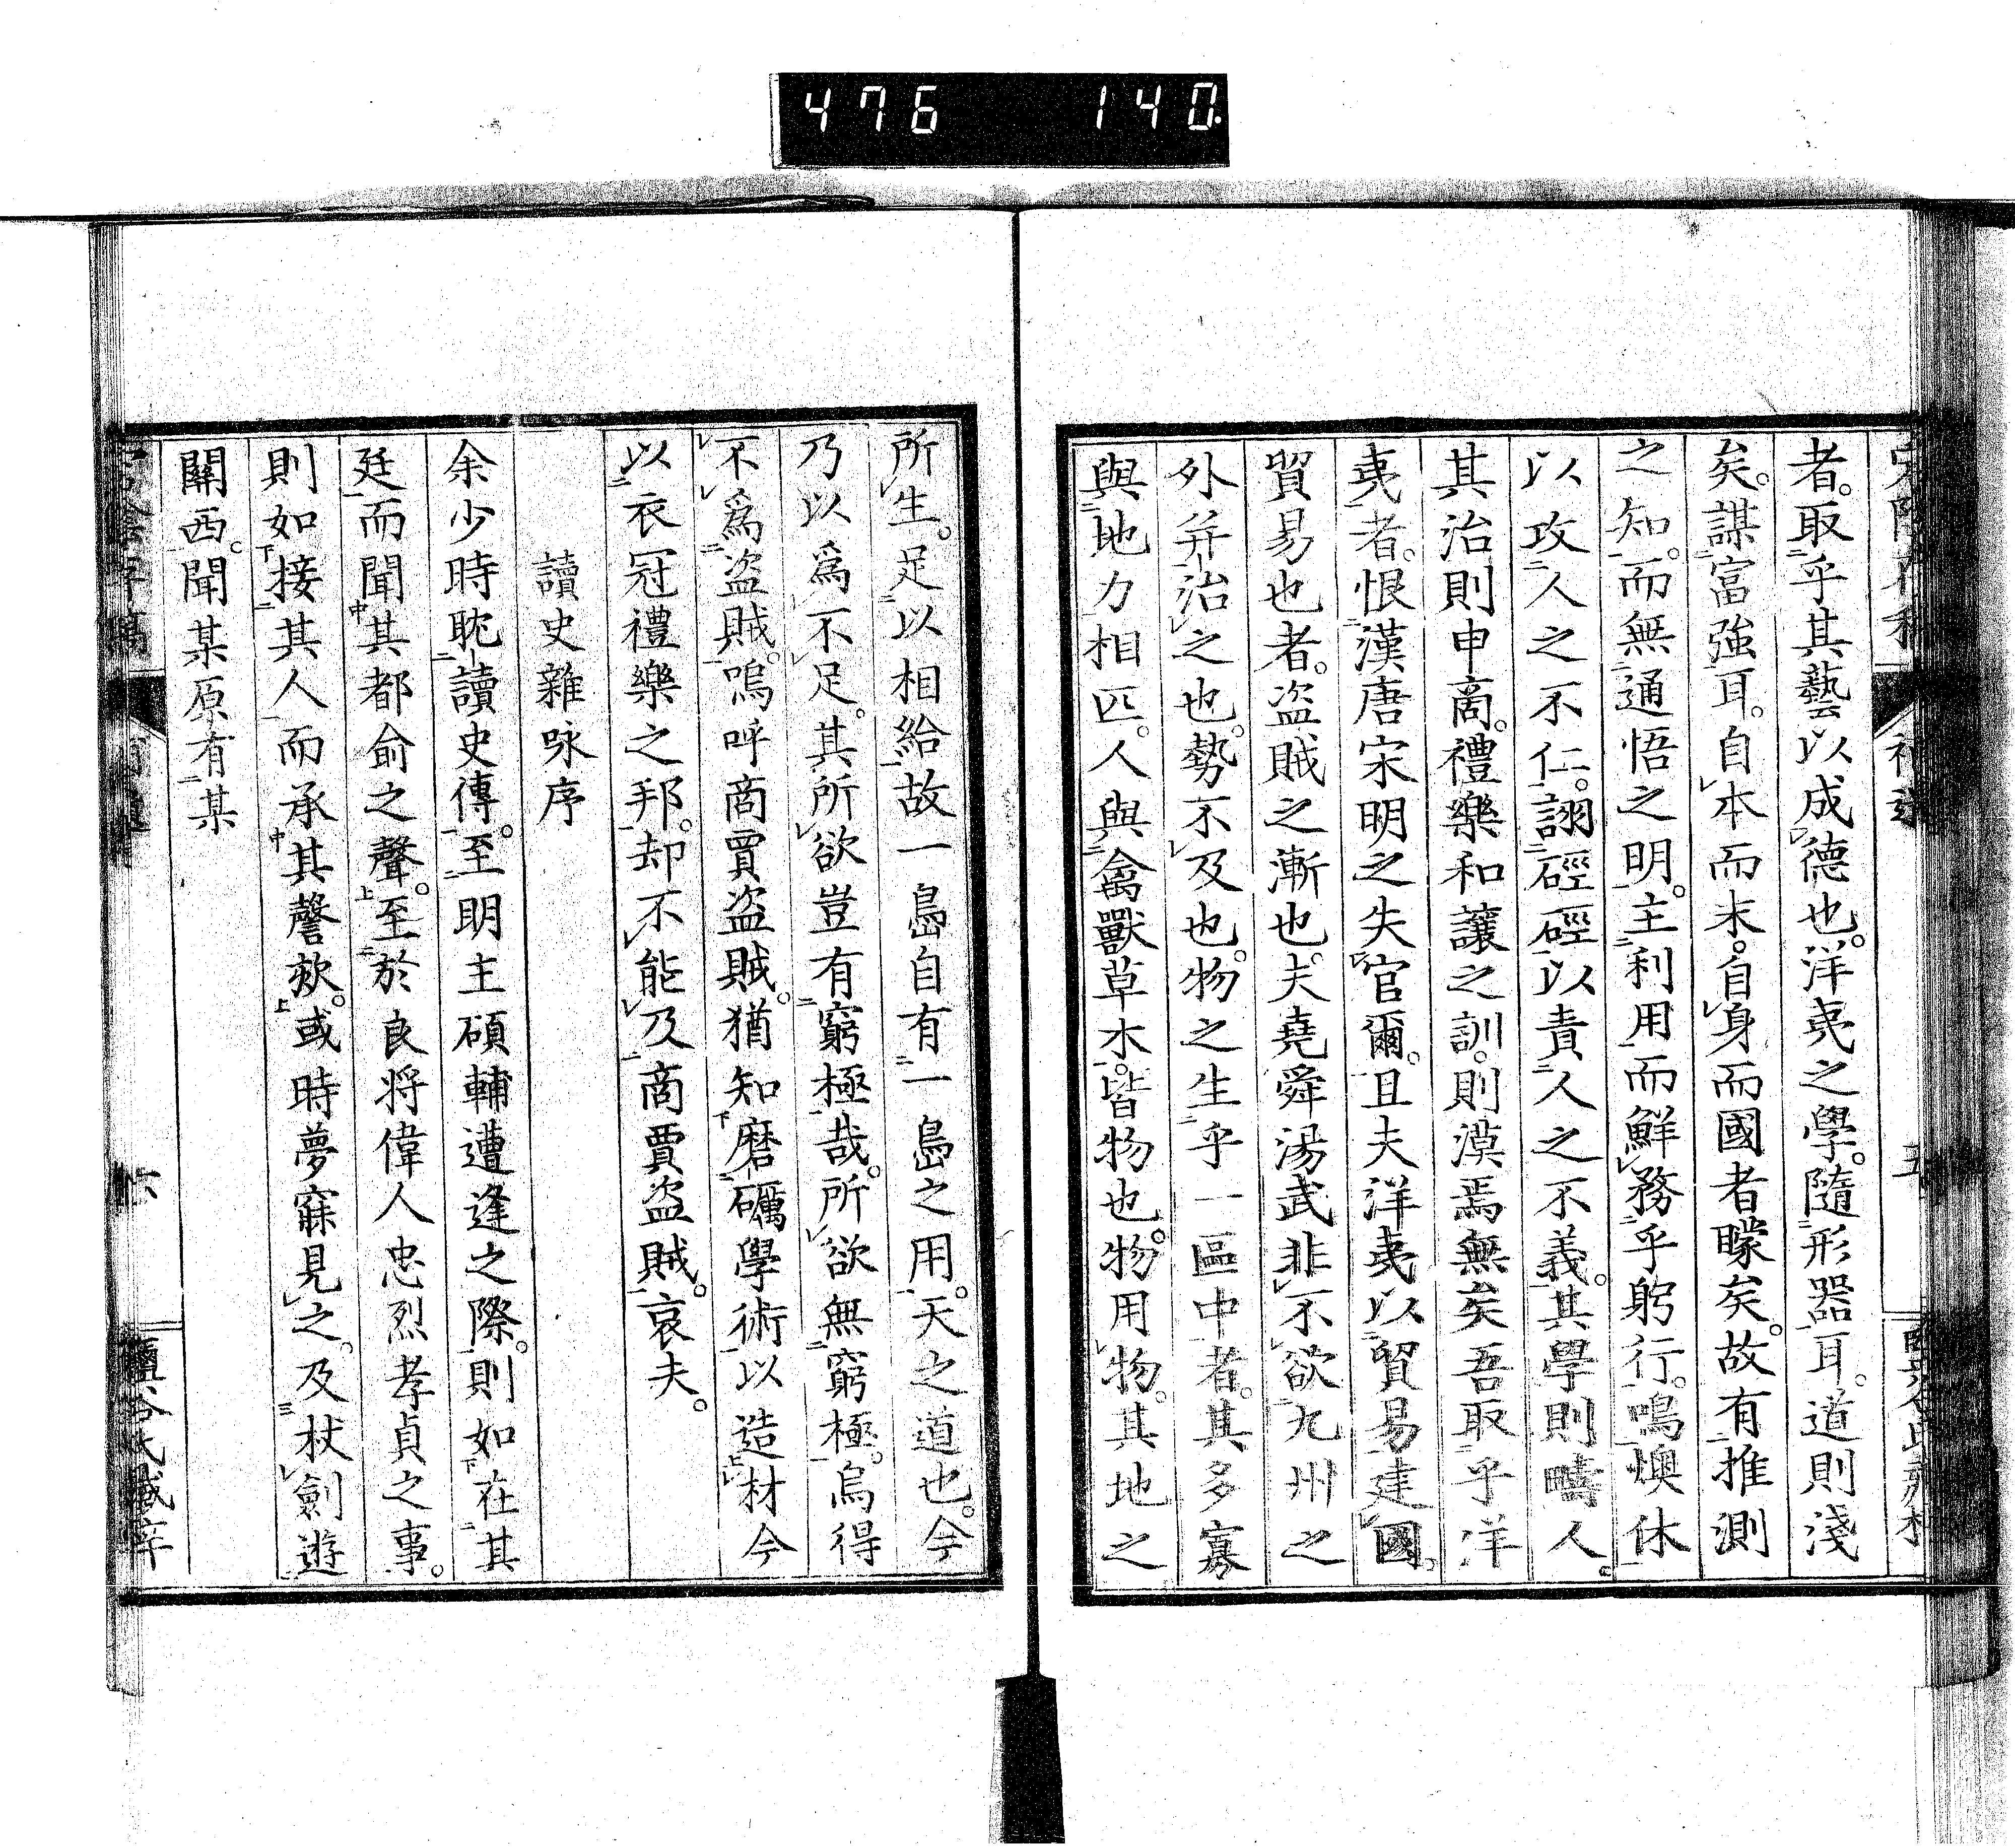 476 140.
者。取乎其藝以成德也。洋夷之學。隨形器耳。道則淺
矣。謀富強耳。自本而末。自身而國者矇矣。故有推測
之知。而無通悟之明。主利用而鮮務乎躬行。嗚燠休
以攻人之不仁。詡硜硜以責人之不義。其學則疇人。
其治則申商。禮樂和讓之訓。則漠焉無矣吾取乎洋
夷者。恨漢唐宋明之失官爾。且夫洋夷以貿易建國。
貿易也者。盜賊之漸也。夫堯舜湯武非不欲九州之
外并治之也。勢不及也。物之生乎一區中者。其多寡
與地力相匹。人與禽獸草木。皆物也。物用物。其地之
五
所生。足以相給故一島自有一島之用。天之道也。今
乃以爲不足。其所欲豈有窮極哉。所欲無窮極。烏得
不爲盜賊。嗚呼商賈盜賊。猶知磨礪學術以造材今
以衣冠禮樂之邦。却不能及商賈盜賊。哀夫。
讀史雜咏序
余少時耽讀史傳。至明主碩輔遭逢之際。則如在其
廷而聞其都俞之聲。至於良將偉人忠烈孝貞之事。
則如接其人而承其謦欬。或時夢寐見之。及杖劍遊
關西。聞某原有某
六